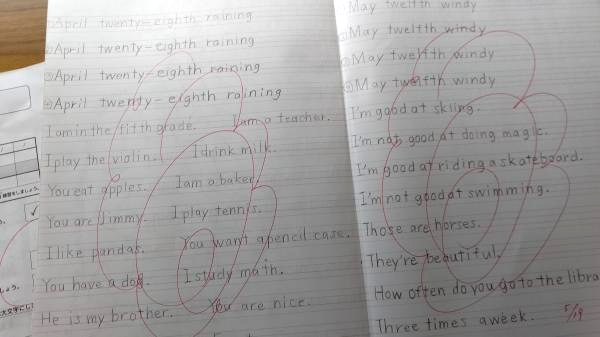 April twenty-eighth raining
April twenty-eighth raining
April twenty-eighth raining
April twenty-eighth raining
I am in the fifth grade. I am a teacher.
I play the violin. I drink milk.
You eat apples. I am a baker.
You are Jimmy. I play tennis.
I like pandas. You want a pencil case.
You have a dog. I study math.
He is my brother. You are nice.
May twelfth windy
May twelfth windy
May twelfth windy
May twelfth windy
I'm good at skiing.
I'm not good at doing magic.
I'm good at riding a skateboard.
I'm not good at swimming.
Those are horses.
They're beautiful.
How often do you go to the libra
Three times a week. 5/19